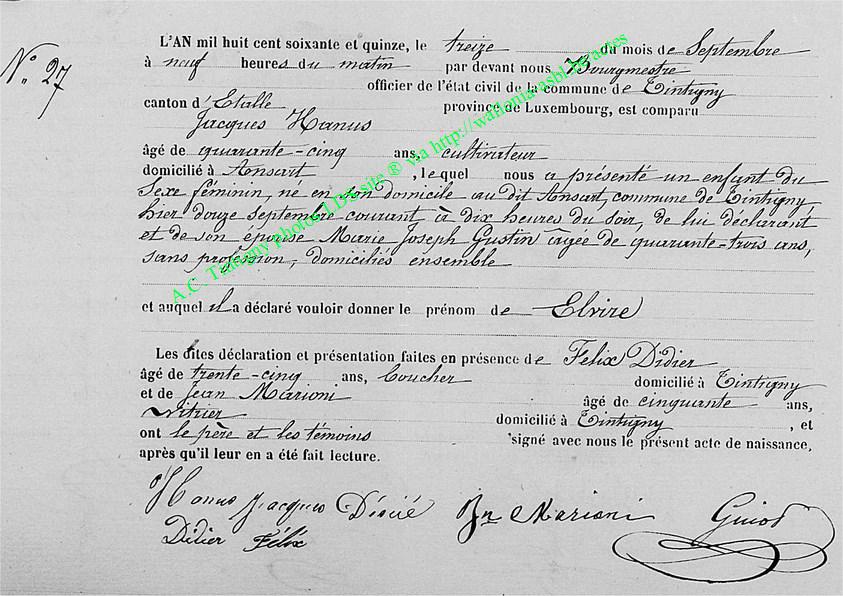 N° 27
L'AN mil huit cent soixante et quinze, le treize du mois de Septembre
à neuf heures du matin par devant nous Bourgmestre
officier de l'état civil de la commune de Tintigny
canton d'Etalle province de Luxembourg, est comparu
Jacques Hanus
âgé de quarante-cinq ans, cultivateur
domicilié à Ansart , lequel nous a présenté un enfant du
Sexe féminin, né en son domicile au dit Ansart, commune de Tintigny,
hier douze septembre courant à dix heures du soir, de lui déclarant
et de son épouse Marie Joseph Gustin âgée de quarante-trois ans,
sans profession, domiciliés ensemble
et auquel il a déclaré vouloir donner le prénom de Elvire
Les dites déclaration et présentation faites en présence de Felix Didier
âgé de trente-cinq ans, boucher domicilié à Tintigny
et de Jean Marioni âgé de cinquante ans,
vitrier domicilié à Tintigny , et
ont le père et les témoins signé avec nous le présent acte de naissance,
après qu'il leur en a été fait lecture.
Hanus Jacques Désiré Jn Marioni Guiot
Didier Félix
A.C. Tintigny photos LDS site ® via http://wallonia-asbl.be/actes